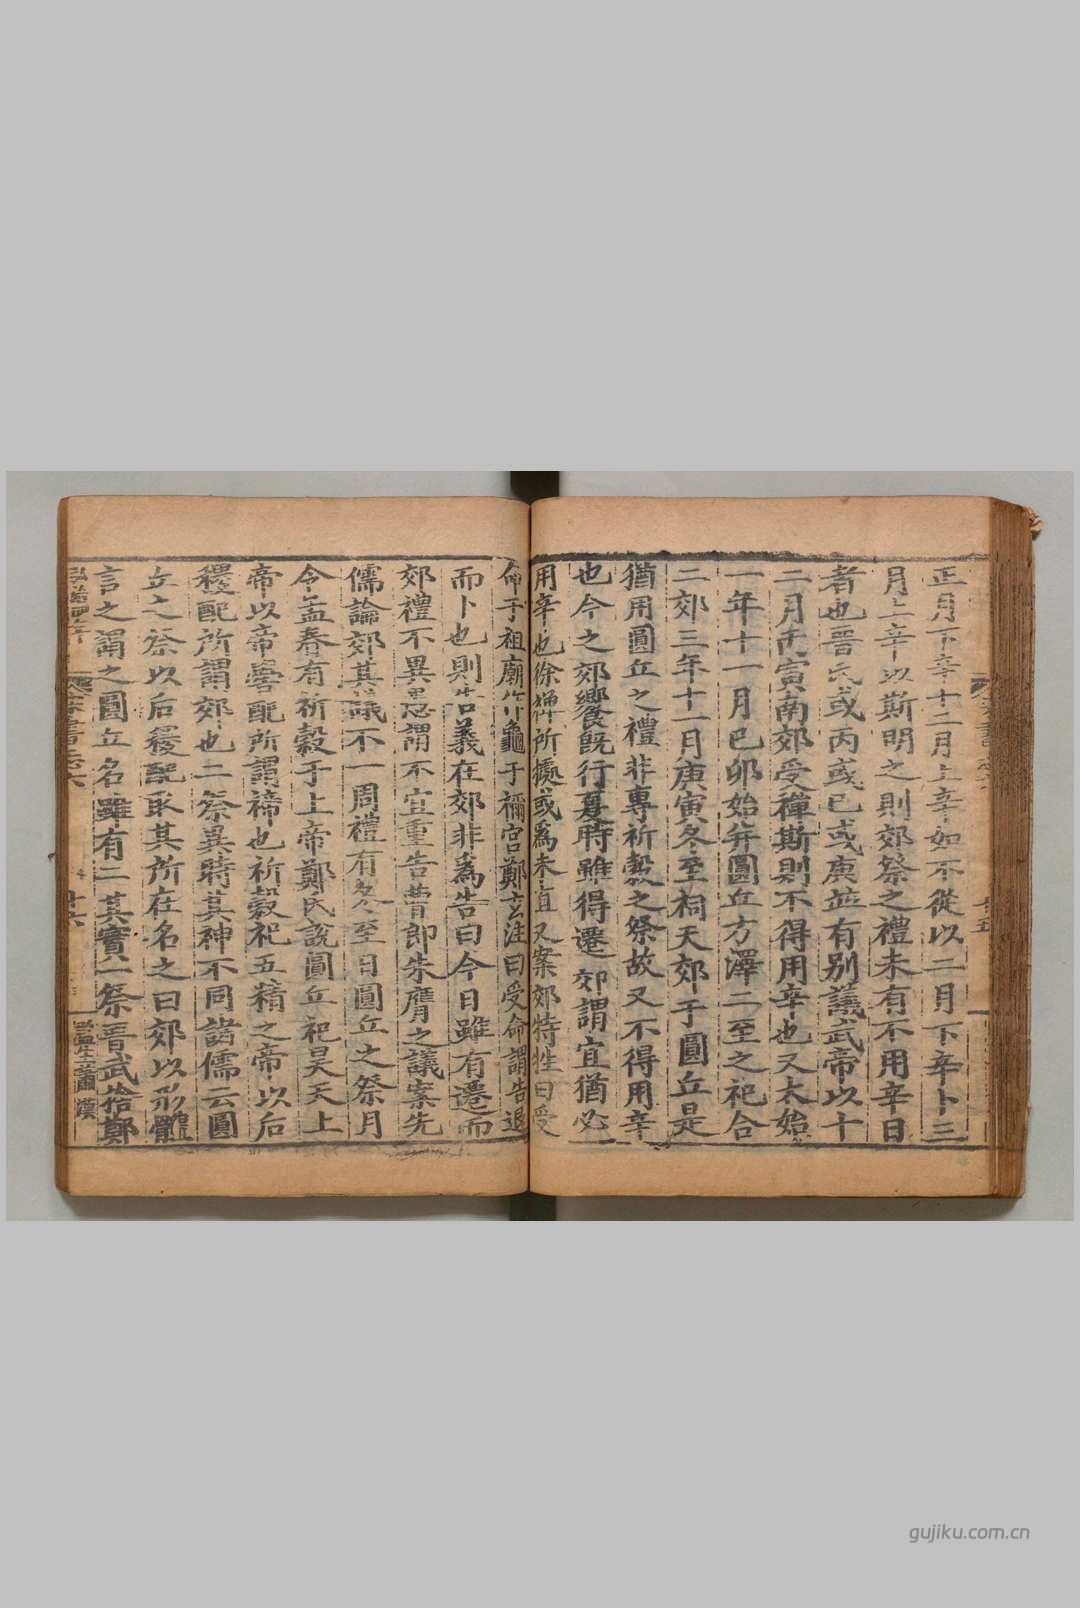 正月下辛十二月上辛如不從以二月下辛卜三
月上辛以斯明之則郊祭之禮未有不用辛日
者也晉氏或丙或已或庚並有别議武帝以十
二月丙寅南郊受禪斯則不得用辛也又太始
一年十一月已卯始并圓丘方澤二至之祀合
二郊三年十一月庚寅冬至祠天郊于圓丘是
猶用圓丘之禮非專祈穀之祭故又不得用辛
也今之郊饗既行夏時雖得遷郊謂宜猶必
用辛也徐禪所據或爲未宜又案郊特牲曰受
命于祖廟作龜于禰宮鄭玄注曰受命謂告退
而卜也則告義在郊非爲告曰今日雖有遷而
郊禮不異愚謂不宜重告曹郎朱膺之議案先
儒論郊其議不一周禮有冬至日圓丘之祭月
令孟春有祈穀于上帝鄭氏說圓丘祀昊天上
帝以帝嚳配所謂禘也祈穀祀五精之帝以后
稷配所謂郊也二祭異時其神不同諸儒云圓
丘之祭以后稷配取其所在名之曰郊以形體
言之謂之圓丘名雖有二其實一祭晉武捨鄭
宋書志六
十六
監生蕭漢